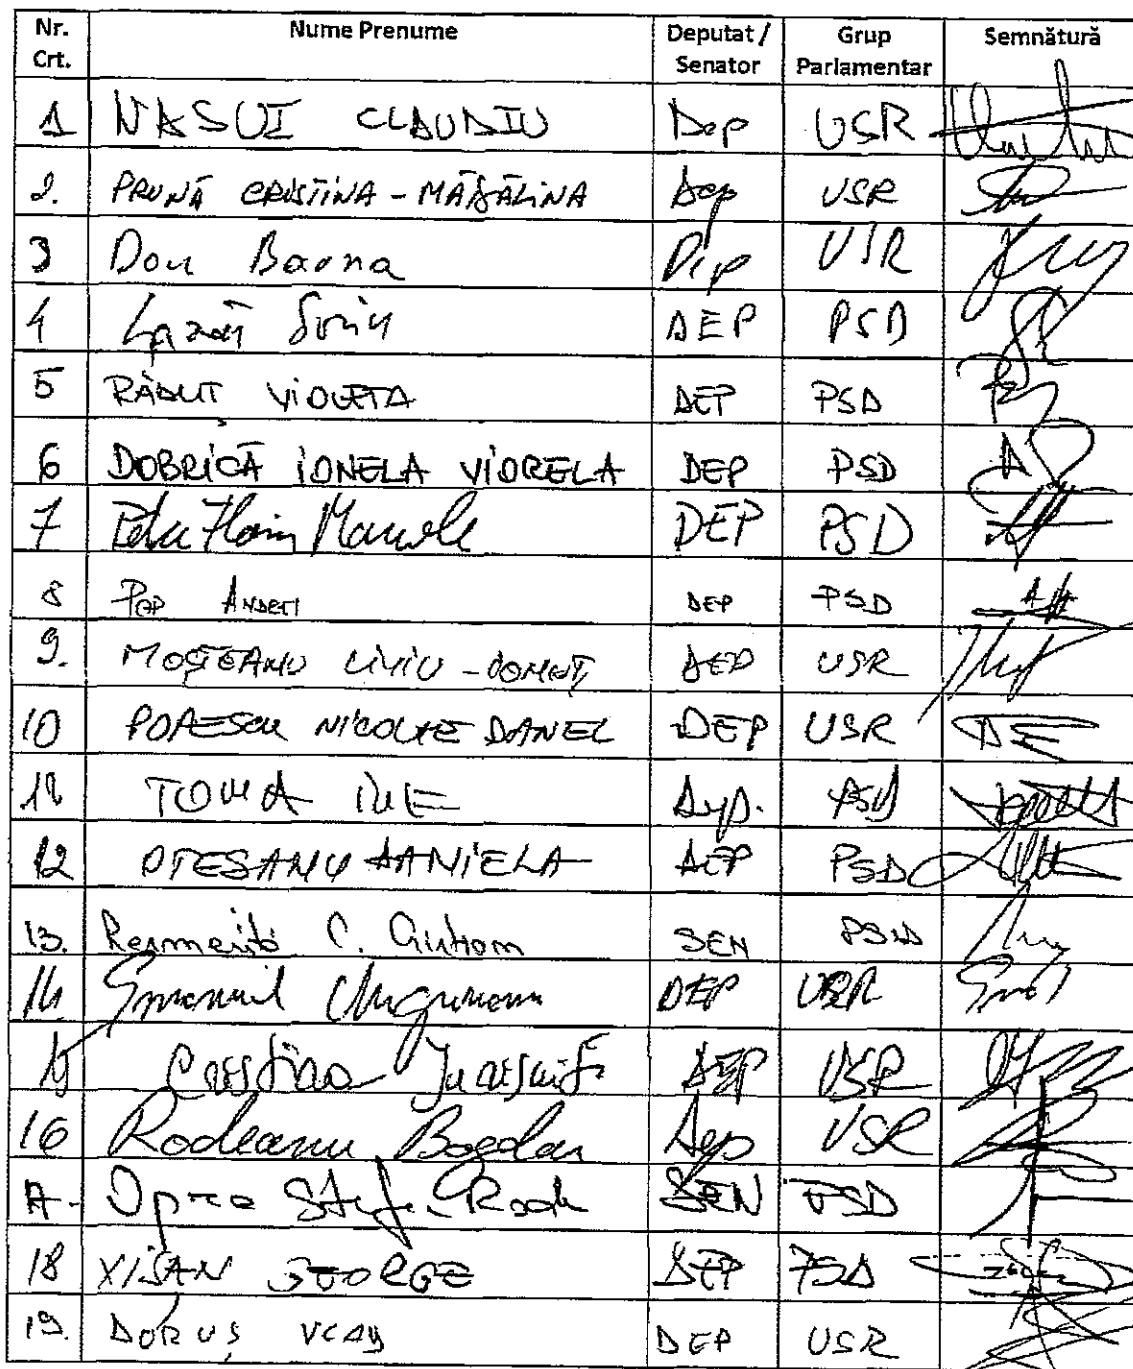 Nr. Crt. Nume Prenume Deputat / Senator Grup Parlamentar Semnătură
1 NASUI CLAUDIU Dep USR
2. PRUNĂ CRISTINA-MĂDĂLINA Dep USR
3 Dan Barna Dep USR
4 Lazăr Sorin DEP PSD
5 RĂDUT VIOLETA DEP PSD
6 DOBRICĂ IONELA VIORELA DEP PSD
7 Petru Florin Manole DEP PSD
8 POP ANDREI DEP PSD
9. MOȘTEANU LIVIU-IONUȚ DEP USR
10 POPESCU NICOLAE DANIEL DEP USR
11 TOMA ILIE Dep. PSD
12 OTESANU DANIELA DEP PSD
13. C. SEN PSD
14. Emanuel Ungureanu DEP USR
15 DEP USR
16 Rodeanu Bogdan Dep USR
17. Oprea Radu SEN PSD
18 XIȘAN GEORGE DEP PSD
19. DEP USR